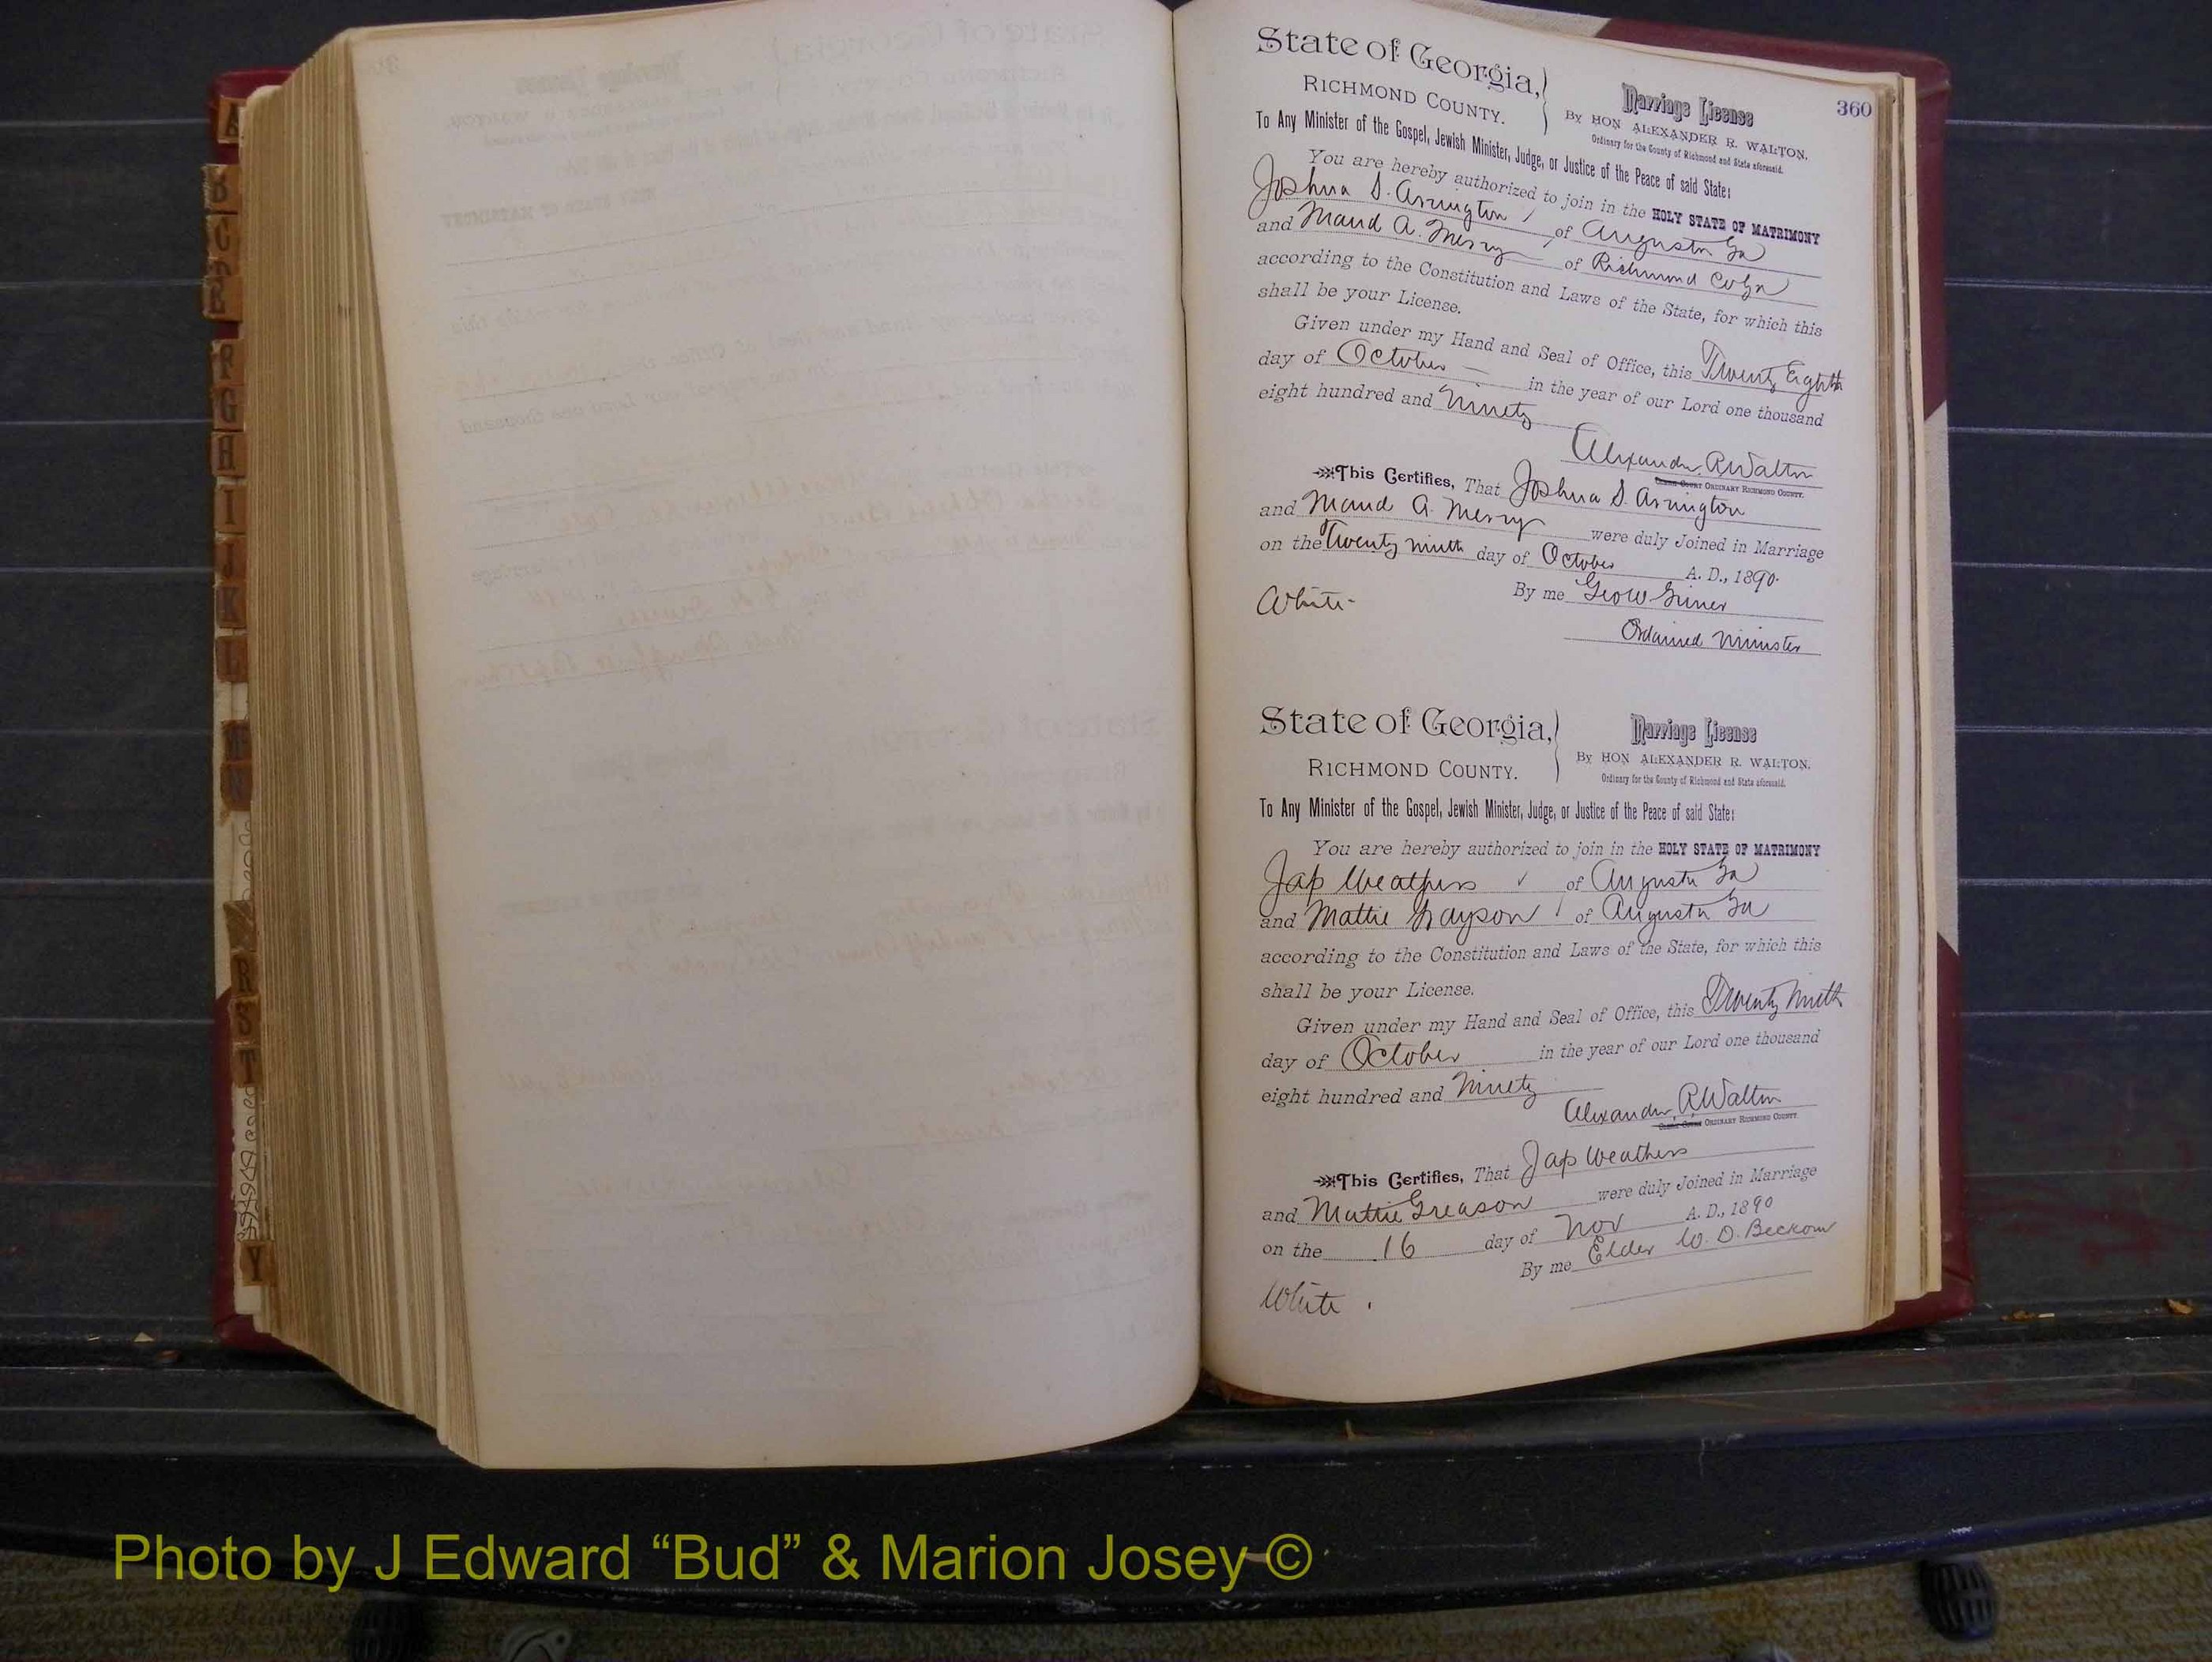 360
State of Georgia,
RICHMOND COUNTY.
Marriage License
By HON ALEXANDER R. WALTON,
Ordinary for the County of Richmond and State aforesaid.
To Any Minister of the Gospel, Jewish Minister, Judge, or Justice of the Peace of said State:
You are hereby authorized to join in the HOLY STATE OF MATRIMONY
Joshua S. Arrington of Augusta Ga
and Maud A. Merry of Richmond Co Ga
according to the Constitution and Laws of the State, for which this
shall be your License.
Given under my Hand and Seal of Office, this Twenty Eighth
day of October in the year of our Lord one thousand
eight hundred and Ninety
Alexander R Walton
ORDINARY RICHMOND COUNTY.
This Certifies, That Joshua S. Arrington
and Maud A. Merry were duly Joined in Marriage
on the Twenty Ninth day of October A. D., 1890.
By me Geo W
White
Ordained Minister
State of Georgia,
RICHMOND COUNTY.
Marriage License
By HON ALEXANDER R. WALTON,
Ordinary for the County of Richmond and State aforesaid.
To Any Minister of the Gospel, Jewish Minister, Judge, or Justice of the Peace of said State:
You are hereby authorized to join in the HOLY STATE OF MATRIMONY
Jap Weathers of Augusta Ga
and Mattie Grayson of Augusta Ga
according to the Constitution and Laws of the State, for which this
shall be your License.
Given under my Hand and Seal of Office, this Twenty Ninth
day of October in the year of our Lord one thousand
eight hundred and Ninety
Alexander R Walton
ORDINARY RICHMOND COUNTY.
This Certifies, That Jap Weathers
and Mattie Greason were duly Joined in Marriage
on the 16 day of Nov A. D., 1890
By me Elder W. D. Beckom
White
Photo by J Edward “Bud” & Marion Josey ©